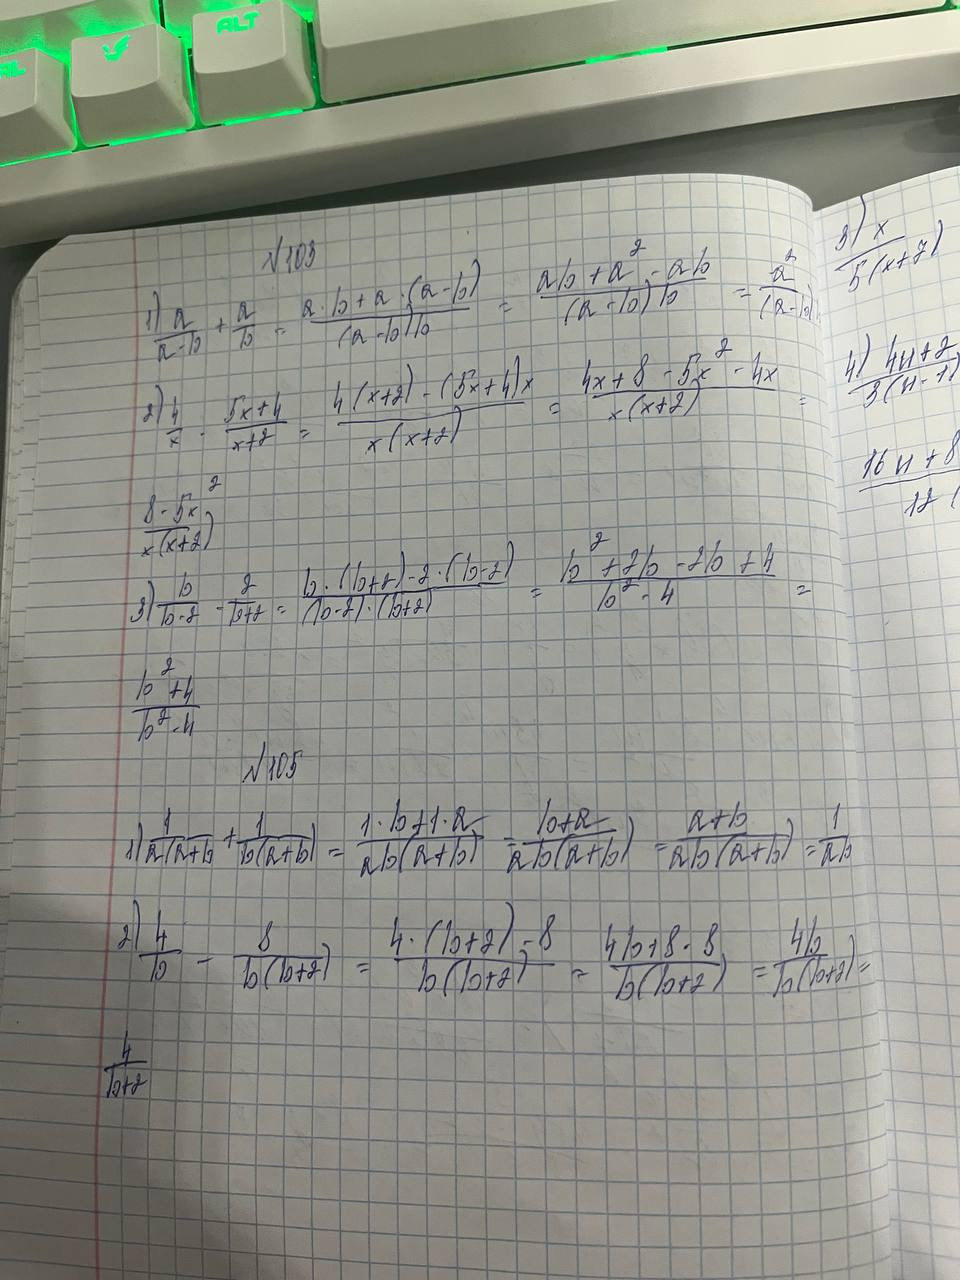 ALT
№103
1) a/(a-b) + a/b = (a·b+a·(a-b))/((a-b)b) = (ab+a²-ab)/((a-b)b) = a²/((a-b)
2) 4/x - (5x+4)/(x+2) = (4(x+2)-(5x+4)x)/(x(x+2)) = (4x+8-5x²-4x)/(x(x+2)) =
(8-5x²)/(x(x+2))
3) b/(b-2) - 2/(b+2) = (b·(b+2)-2·(b-2))/((b-2)·(b+2)) = (b²+2b-2b+4)/(b²-4) =
(b²+4)/(b²-4)
№105
1) 1/(a(a+b) + 1/(b(a+b)) = (1·b+1·a)/(ab(a+b)) = (b+a)/(ab(a+b)) = (a+b)/(ab(a+b)) = 1/(ab)
2) 4/b - 8/(b(b+2)) = (4·(b+2)-8)/(b(b+2)) = (4b+8-8)/(b(b+2)) = 4b/(b(b+2)) =
4/(b+2)
3) x/(5(x+7))
4) (4n+2)/(3(n-1))
16n+8/12(